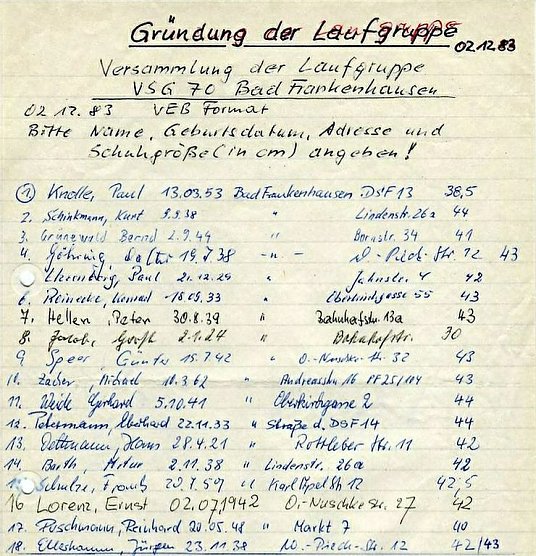 Gründung der Laufgruppe
02.12.83
Versammlung der Laufgruppe
VSG 70 Bad Frankenhausen
02.12.83 VEB Format
Bitte Name, Geburtsdatum, Adresse und
Schuhgröße (in cm) angeben!
1 Knolle, Paul 13.03.53 Bad Frankenhausen DSF 13 38,5
2. Schinkmann, Kurt 9.9.38 " Lindenstr. 26a 44
3. Grünewald Bernd 2.9.49 " Bornstr. 34 41
4. Göhring 19.7.38 -"- W.-Pieck-Str. 12 43
Paul 21.12.29 " Jahnstr. 4 42
6. Reinecke, Konrad 18.09.33 " 55 43
7. Heller, Peter 30.8.39 " Bahnhofstr. 13a 43
8. Jacob, 2.1.24 " Bahnhofstr. 30
9. Speer, Günter 15.7.42 " O.-Nuschke-Str. 32 43
10. Zacher, Michael 10.3.62 " 16 PF 25/104 43
11. Weide Gerhard 5.10.41 " Oberkirchgasse 2 44
12. Petermann, Eberhard 22.11.33 " Straße d. DSF 14 44
13. Dettmann, Hans 28.4.21 " Rottleber Str. 11 42
14. Barth, Artur 2.11.38 " Lindenstr. 26a 42
Schulze, Frank 20.7.59 " 12 42,5
16 Lorenz, Ernst 02.07.1942 O.-Nuschkestr. 27 42
17. Puschmann, Reinhard 20.05.48 " Markt 7 40
18. Jürgen 23.11.38 " W.-Pieck-Str. 12 42/43